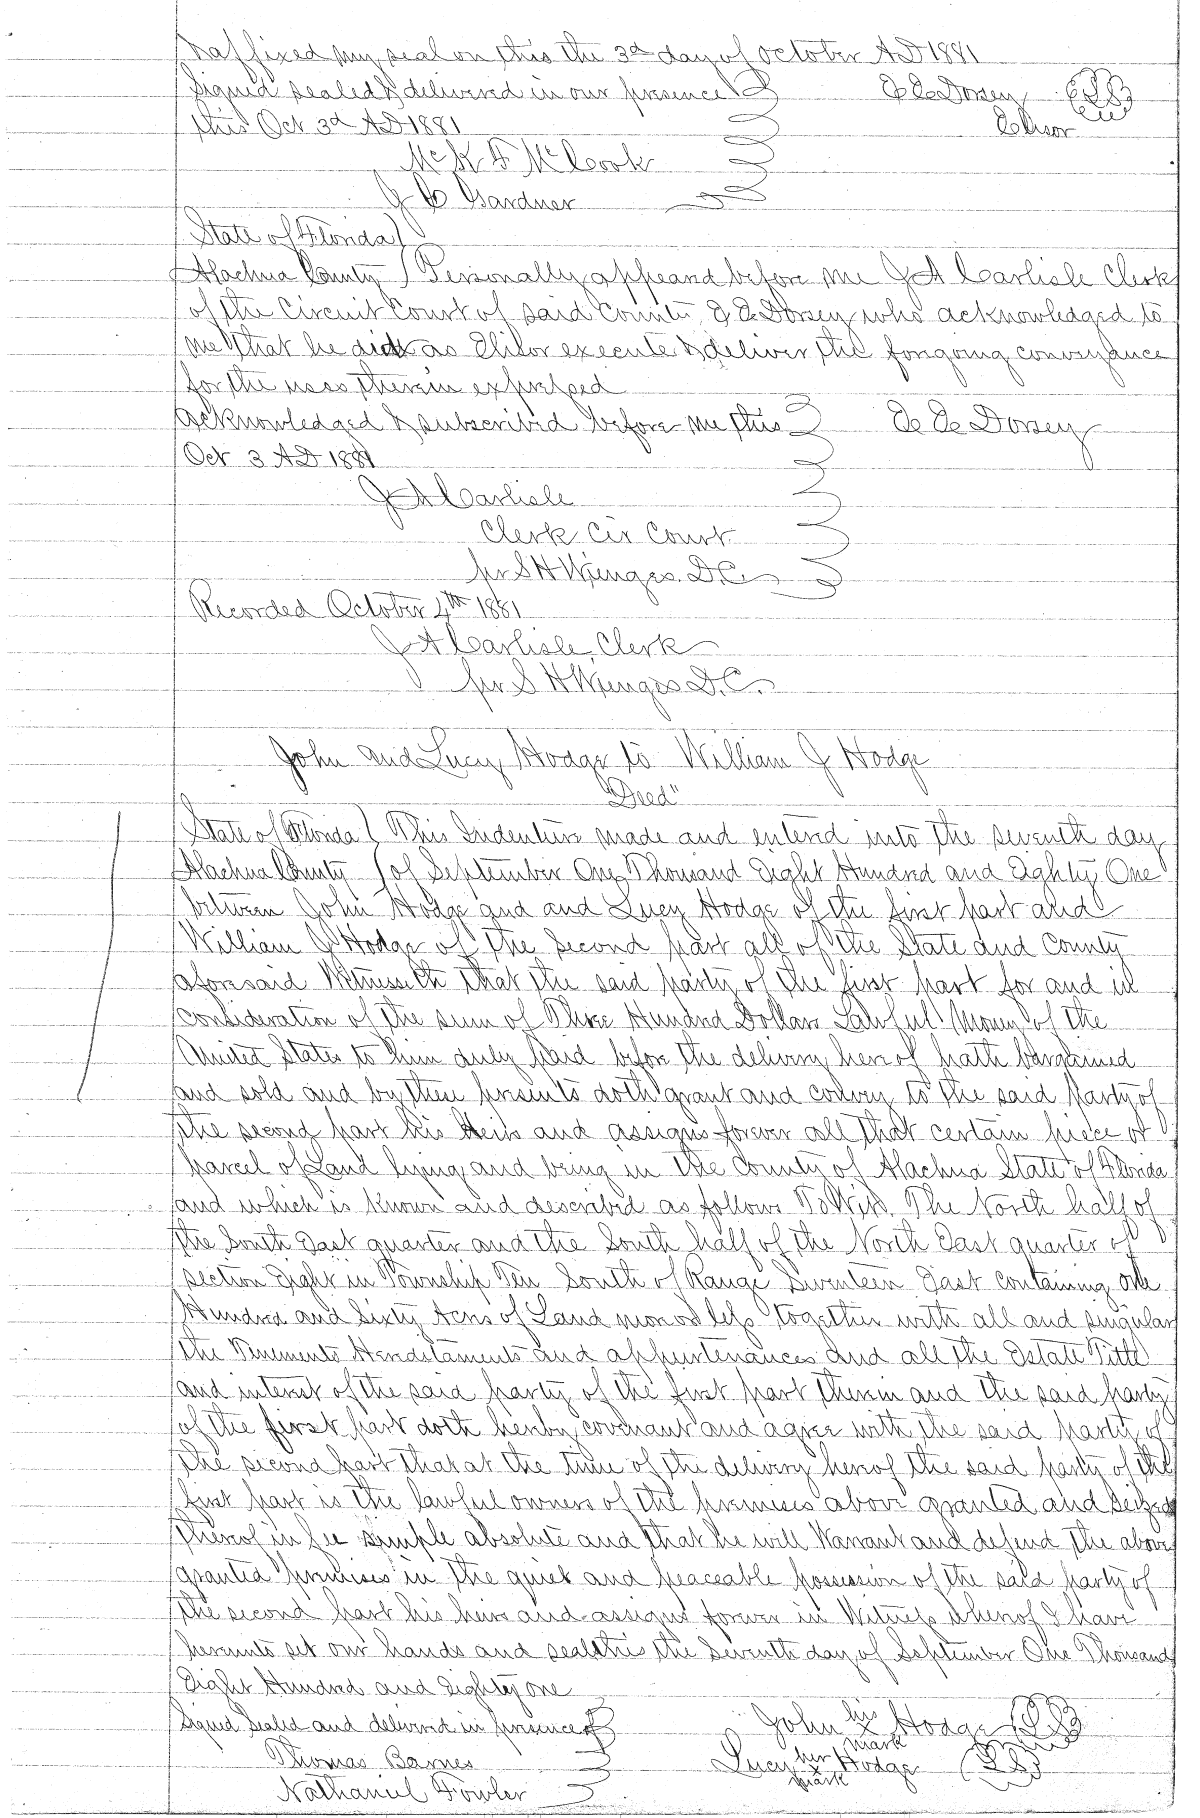 & affixed my seal on this the 3d day of October AD 1881
Signed sealed & delivered in our presence E E Dorsey LS
this Oct 3d AD 1881 Elisor
McK F McCook
J C Gardner
State of Florida
Alachua County Personally appeard before me J A Carlisle Clerk
of the Circuit Court of said County E E Dorsey who acknowledged to
me that he did as Elisor execute & deliver the forgoing conveyance
for the uses therein expressed
Acknowledged & subscribed before me this E E Dorsey
Oct 3 AD 1881
J A Carlisle
Clerk Cir Court
pr S H Wienges D.C.
Recorded October 4th 1881
J A Carlisle, Clerk
pr S H Wienges D.C.
John and Lucy Hodge to William J Hodge
"Deed"
State of Florida This Indenture made and entered into the seventh day
Alachua County of September One Thousand Eight Hundred and Eighty One
between John Hodge and and Lucy Hodge of the first part and
William J Hodge of the second part all of the State and County
aforesaid Witnesseth that the said party of the first part for and in
consideration of the sum of Three Hundred Dollars Lawful Money of the
United States to him duly paid before the delivery hereof hath bargained
and sold and by these presents doth grant and convey to the said party of
the second part his Heirs and assigns forever all that certain piece or
parcel of Land lying and being in the County of Alachua State of Florida
and which is known and described as follows To Wit. The North half of
the South East quarter and the South half of the North East quarter of
section Eight in Township Ten South of Range Seventeen East containing one
Hundred and Sixty Acres of Land more or less together with all and singular
the Tenements Hereditaments and appurtenances and all the Estate Title
and interest of the said party of the first part therein and the said party
of the first part doth hereby covenant and agree with the said party of
the second part that at the time of the delivery hereof the said party of the
first part is the lawful owners of the premises above granted and seized
thereof in fee simple absolute and that he will Warrant and defend the above
granted premises in the quiet and peaceable possession of the said party of
the second part his heirs and assigns forever in Witness whereof I have
hereunto set our hands and seal this the Seventh day of September One Thousand
Eight Hundred and Eighty one
Signed Sealed and delivered in presence of John his x mark Hodge LS
Thomas Barnes Lucy her x mark Hodge LS
Nathaniel Fowler